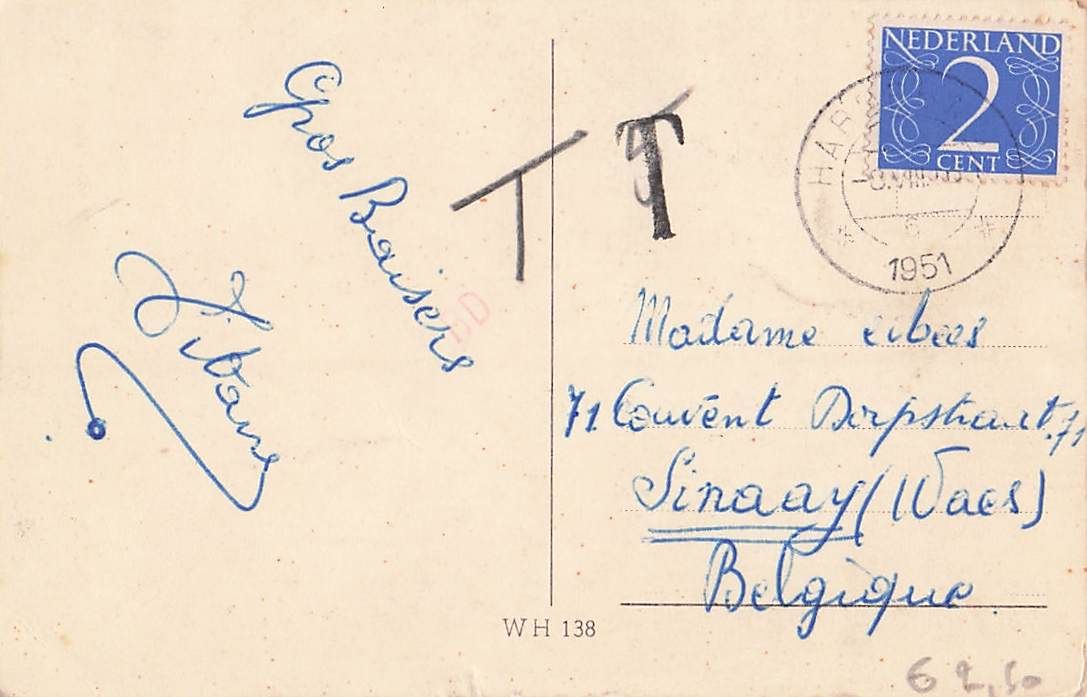 Gros Baisers
T T
NEDERLAND
2
CENT
1951
Madame
71 Couvent Dorpstraat 71
Sinaay (Waes)
Belgique
WH 138